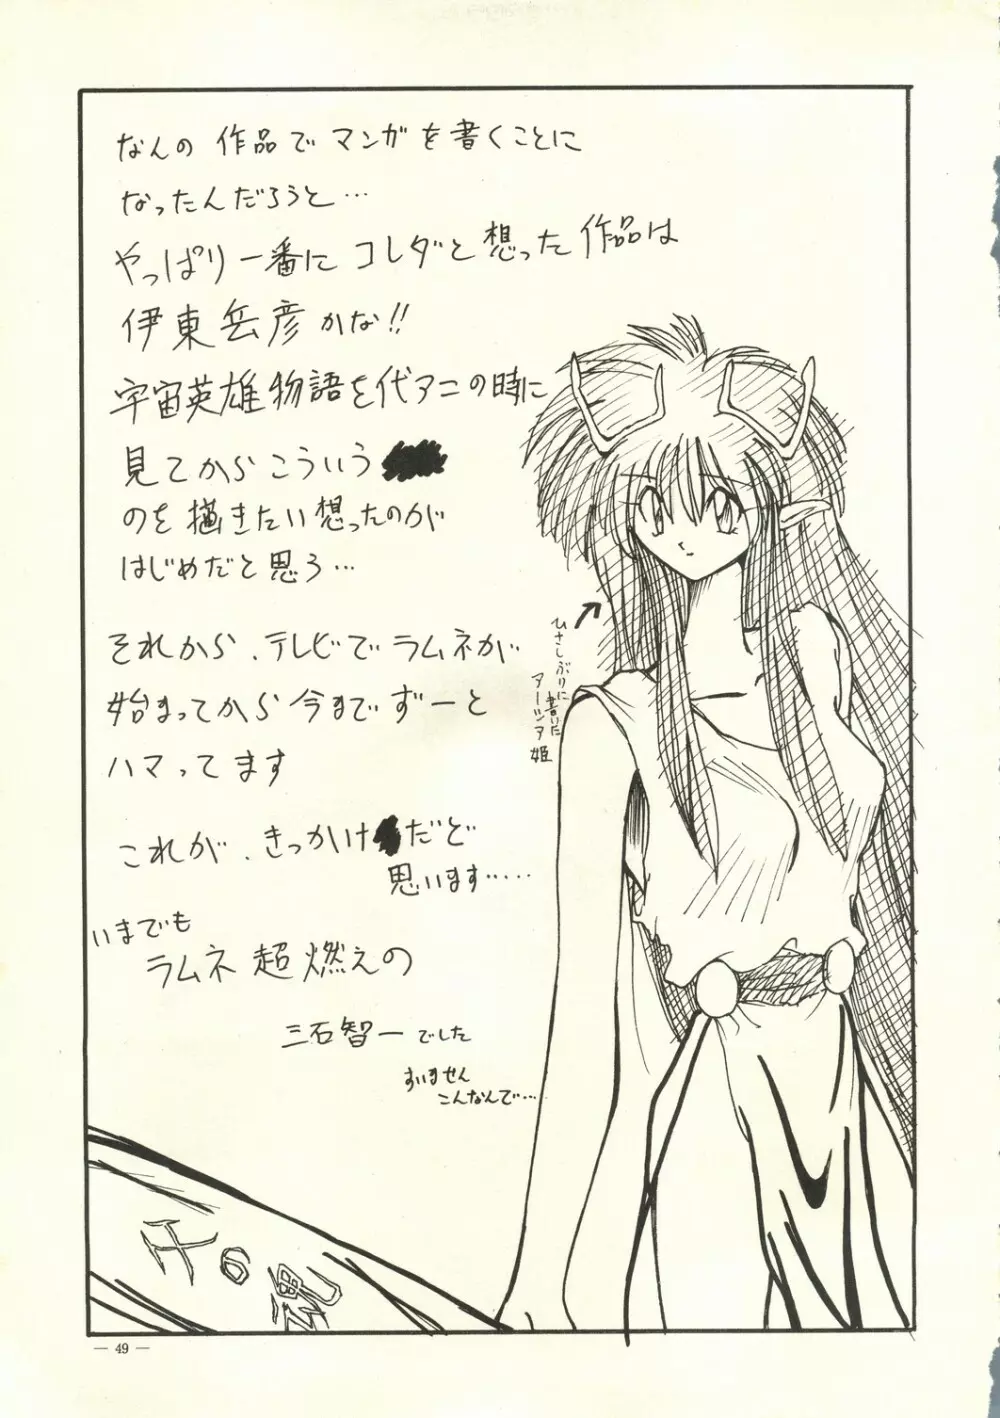 なんの作品でマンガを書くことに
なったんだろうと…
やっぱり一番にコレダと想った作品は
伊東岳彦かな!!
宇宙英雄物語を代アニの時に
見てからこういう
のを描きたい想ったのが
はじめだと思う…
それから、テレビでラムネが
始まってから今までずーと
ハマってます
これが、きっかけだと
思います……
いまでも
ラムネ超燃えの
三石智一でした
すいません
こんなんで…
ひさしぶりに
書いた
アーシア姫
— 49 —